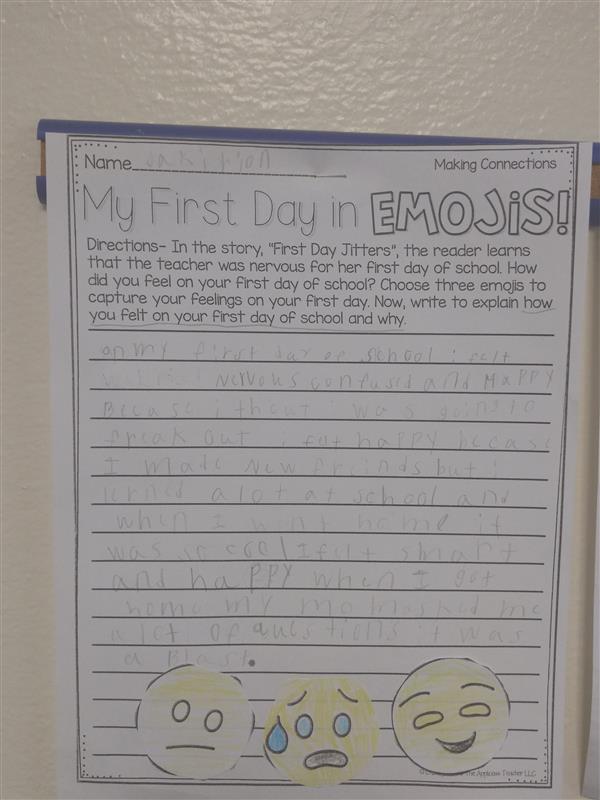 Name
Making Connections
My First Day in EMOJIS!
Directions- In the story, "First Day Jitters", the reader learns
that the teacher was nervous for her first day of school. How
did you feel on your first day of school? Choose three emojis to
capture your feelings on your first day. Now, write to explain how
you felt on your first day of school and why.
on my first day of school i felt
nervous confused and Happy
Becase i thout i was going to
freak out i felt happy becase
I made new friends but i
lerned a lot at school and
when I went home it
was so cool I felt smart
and happy when I got
home my mom asked me
a lot of questions it was
a Blast.
The Applicious Teacher LLC